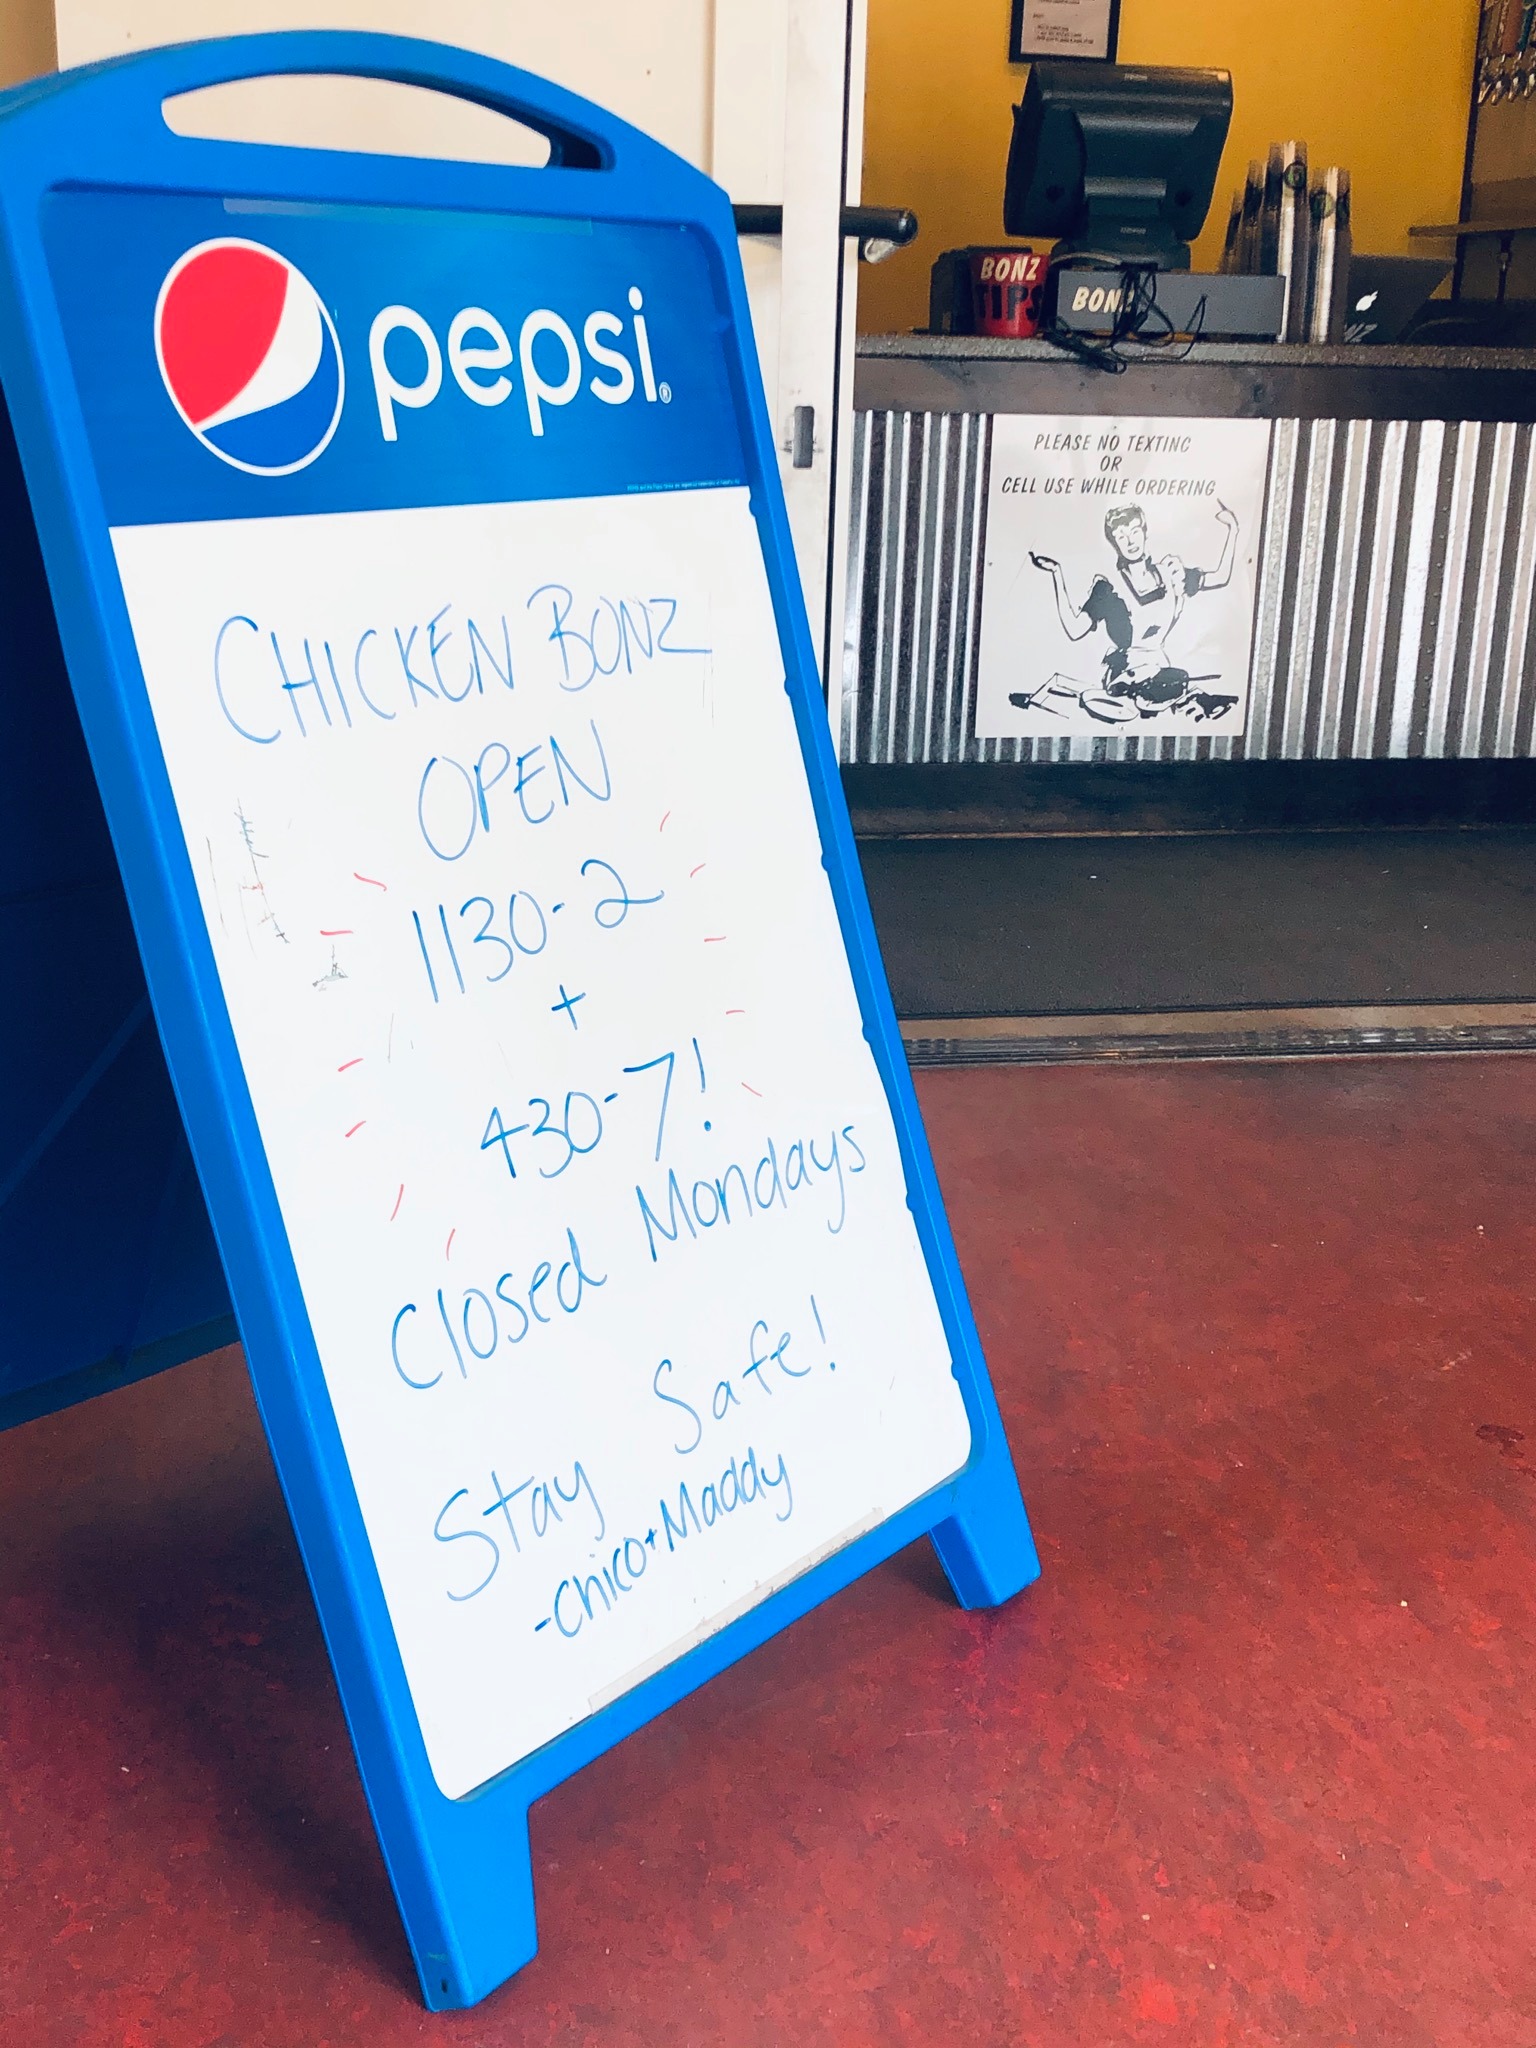 pepsi®
CHICKEN BONZ
OPEN
1130-2
+
430-7!
Closed Mondays
Stay Safe!
-Chico+Maddy
BONZ
TIPS
BONZ
PLEASE NO TEXTING
OR
CELL USE WHILE ORDERING